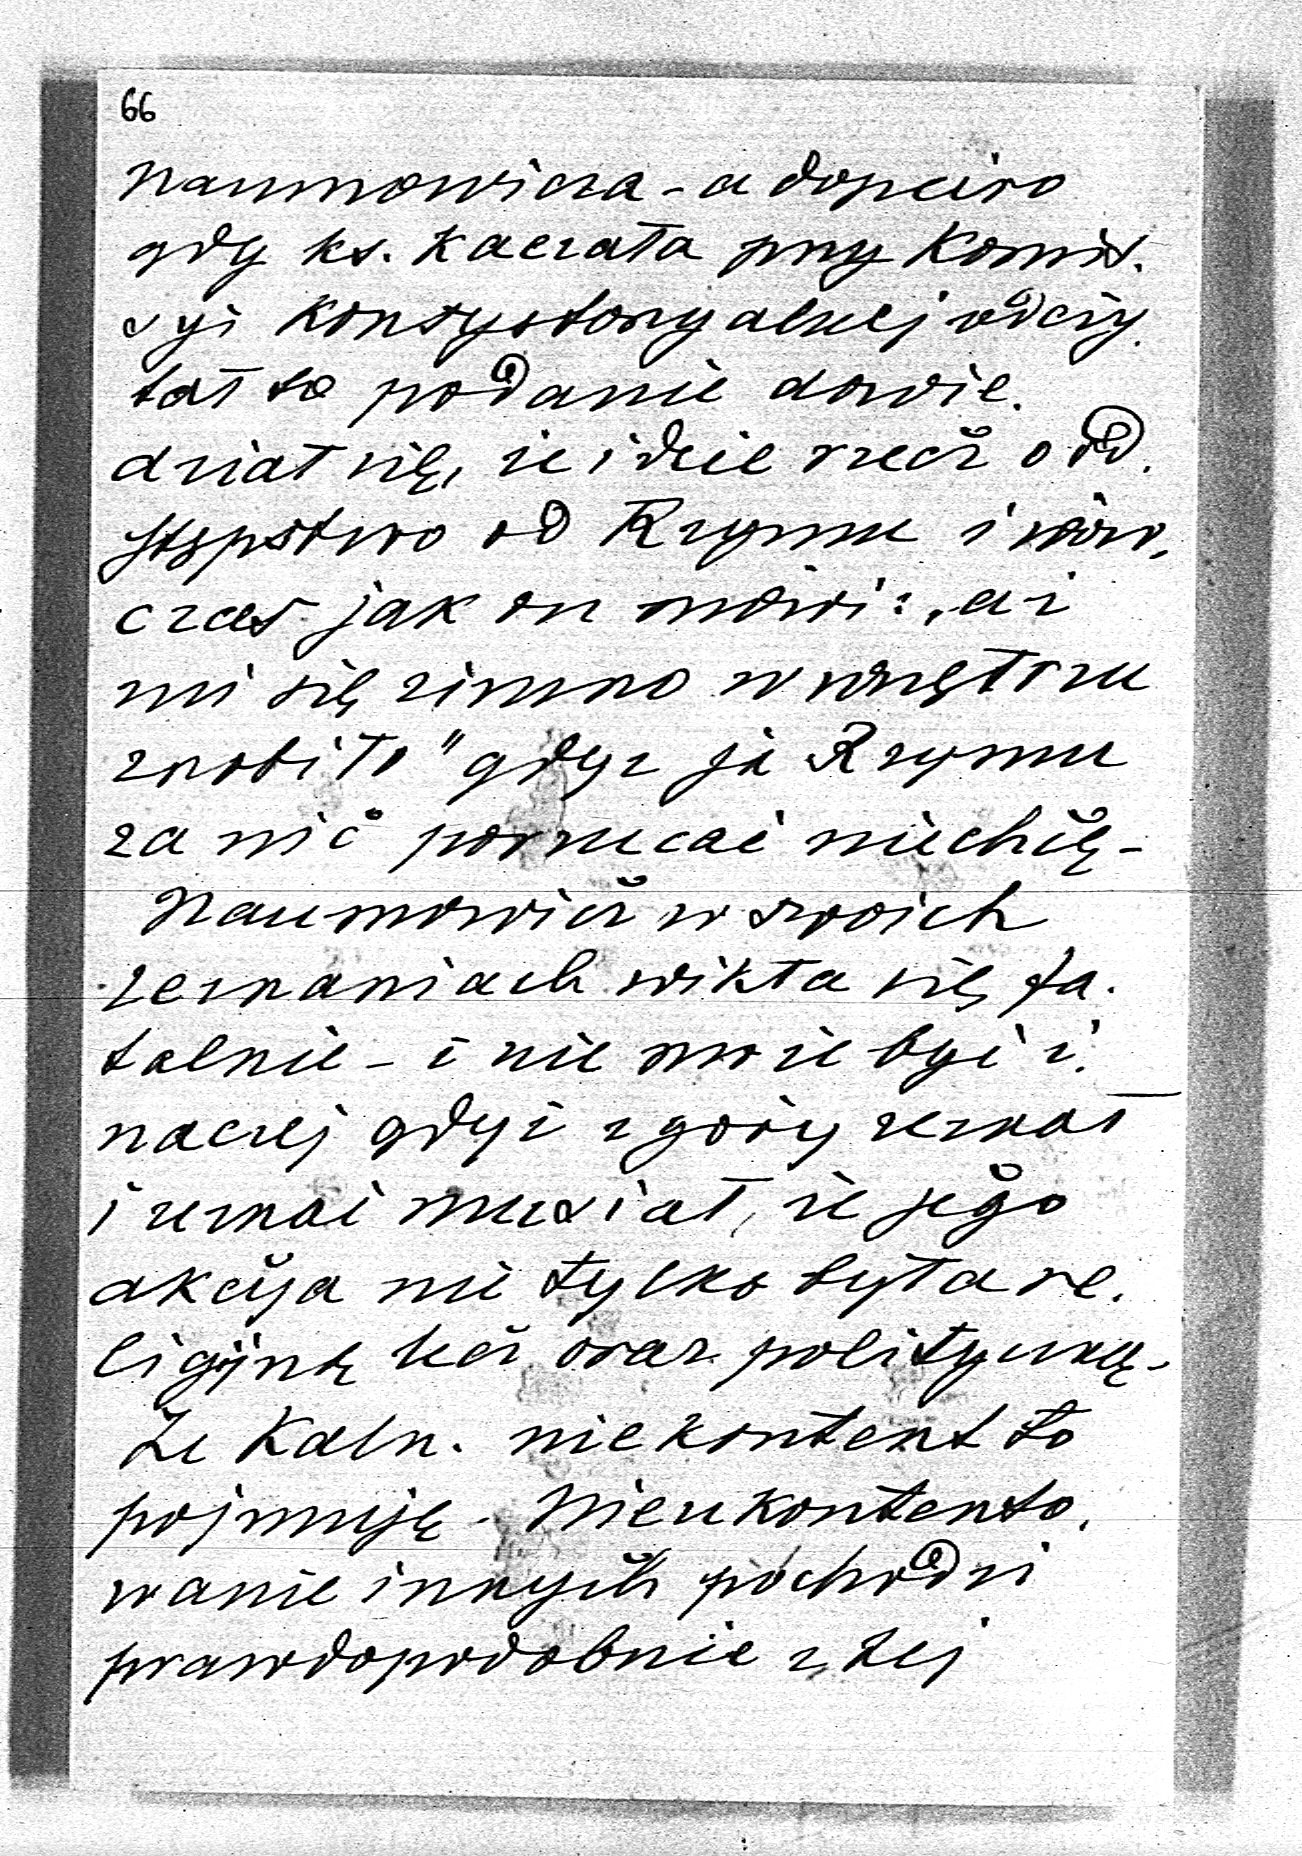 66
Naumowicza - a dopeiro
gdy ks. Kaczała przy Komis.
syi Konsystoryalnej odczy.
tał to podanie dowie.
dział się, że idzie rzecz o od.
stępstwo od Rzymu i wów.
czas jak on mówi: „aż
mi się zimno w wnętrzu
zrobiło" gdyż ja Rzymu
za nic porzucać niechcę -
Naumowicz w swoich
zeznaniach wikła się fa.
talnie - i nie może być i.
naczej gdyż z góry zeznał
i zeznać musiał, że jego
akcija nie tylko była re.
ligijną lecz oraz polityczną -
Że Kaln. niekontent to
pojmuję - Nieukontento.
wanie innych pochodzi
prawdopodobnie z tej